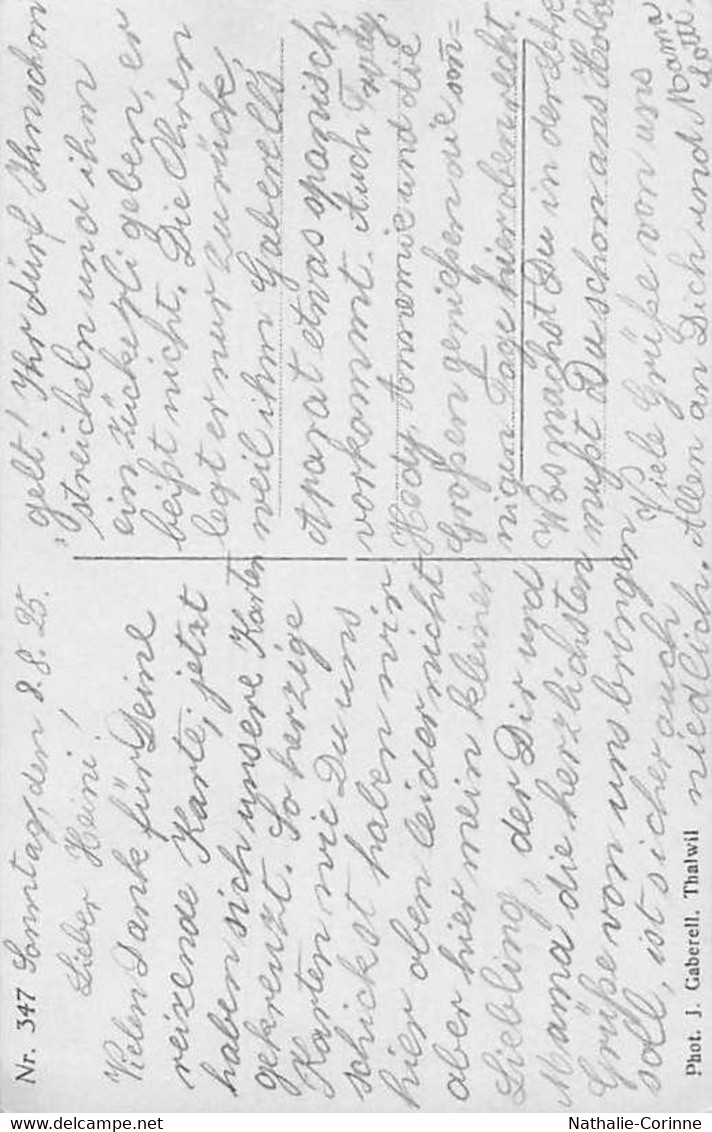 Nr. 347 Sonntag, den 8.8.25.
Lieber Heini!
Vielen Dank für Deine
reizende Karte, jetzt
haben sich unsere Karten
gekreuzt. So herzige
Karten wie Du uns
schickst haben wir
hier oben leider nicht
aber hier mein kleiner
Liebling, der Dir und
Mama die herzlichsten
Grüße von uns bringen
soll, ist sicher auch
niedlich,
Phot. J. Gaberell. Thalwil
gelt! Ihr dürf Ihn schon
streicheln und ihm
ein Zückerli geben, er
beißt nicht. Die Ohren
legt er nur zurück,
weil ihm Gaberells
Aparat etwas spanisch
vorkommt. Auch Trudy,
Hedy, Annemie und die
Großen genießen die son=
nigen Tage hier oben recht.
Was machst Du in der
mußt Du schon ans
Viele Grüße von uns
Allen an Dich und Mama
Lotti.
Nathalie-Corinne